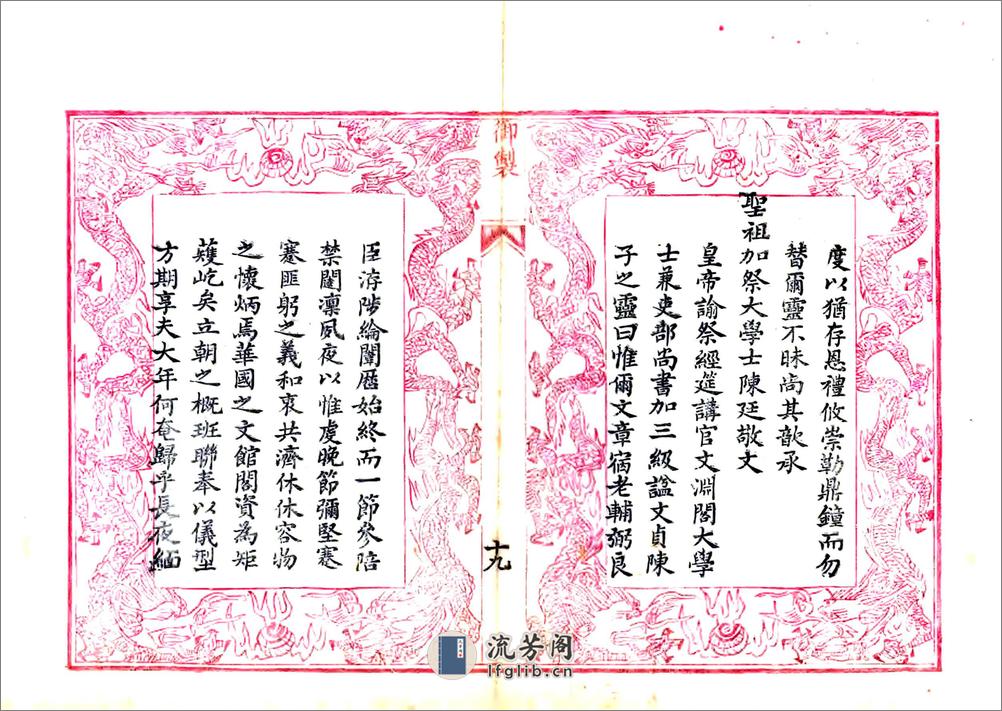 度以猶存恩禮攸崇勒鼎鐘而勿
替爾靈不昧尚其歆承
聖祖加祭大學士陳廷敬文
皇帝諭祭經筵講官文淵閣大學
士兼吏部尚書加三級諡文貞陳
子之靈曰惟爾文章宿老輔弼良
御製
十九
臣洊陟綸闈歷始終而一節參陪
禁闥凜夙夜以惟虔晚節彌堅蹇
蹇匪躬之義和衷共濟休休容物
之懷炳焉華國之文館閣資為矩
矱屹矣立朝之概班聯奉以儀型
方期享夫大年何奄歸乎長夜緬
流芳阁
lfglib.com